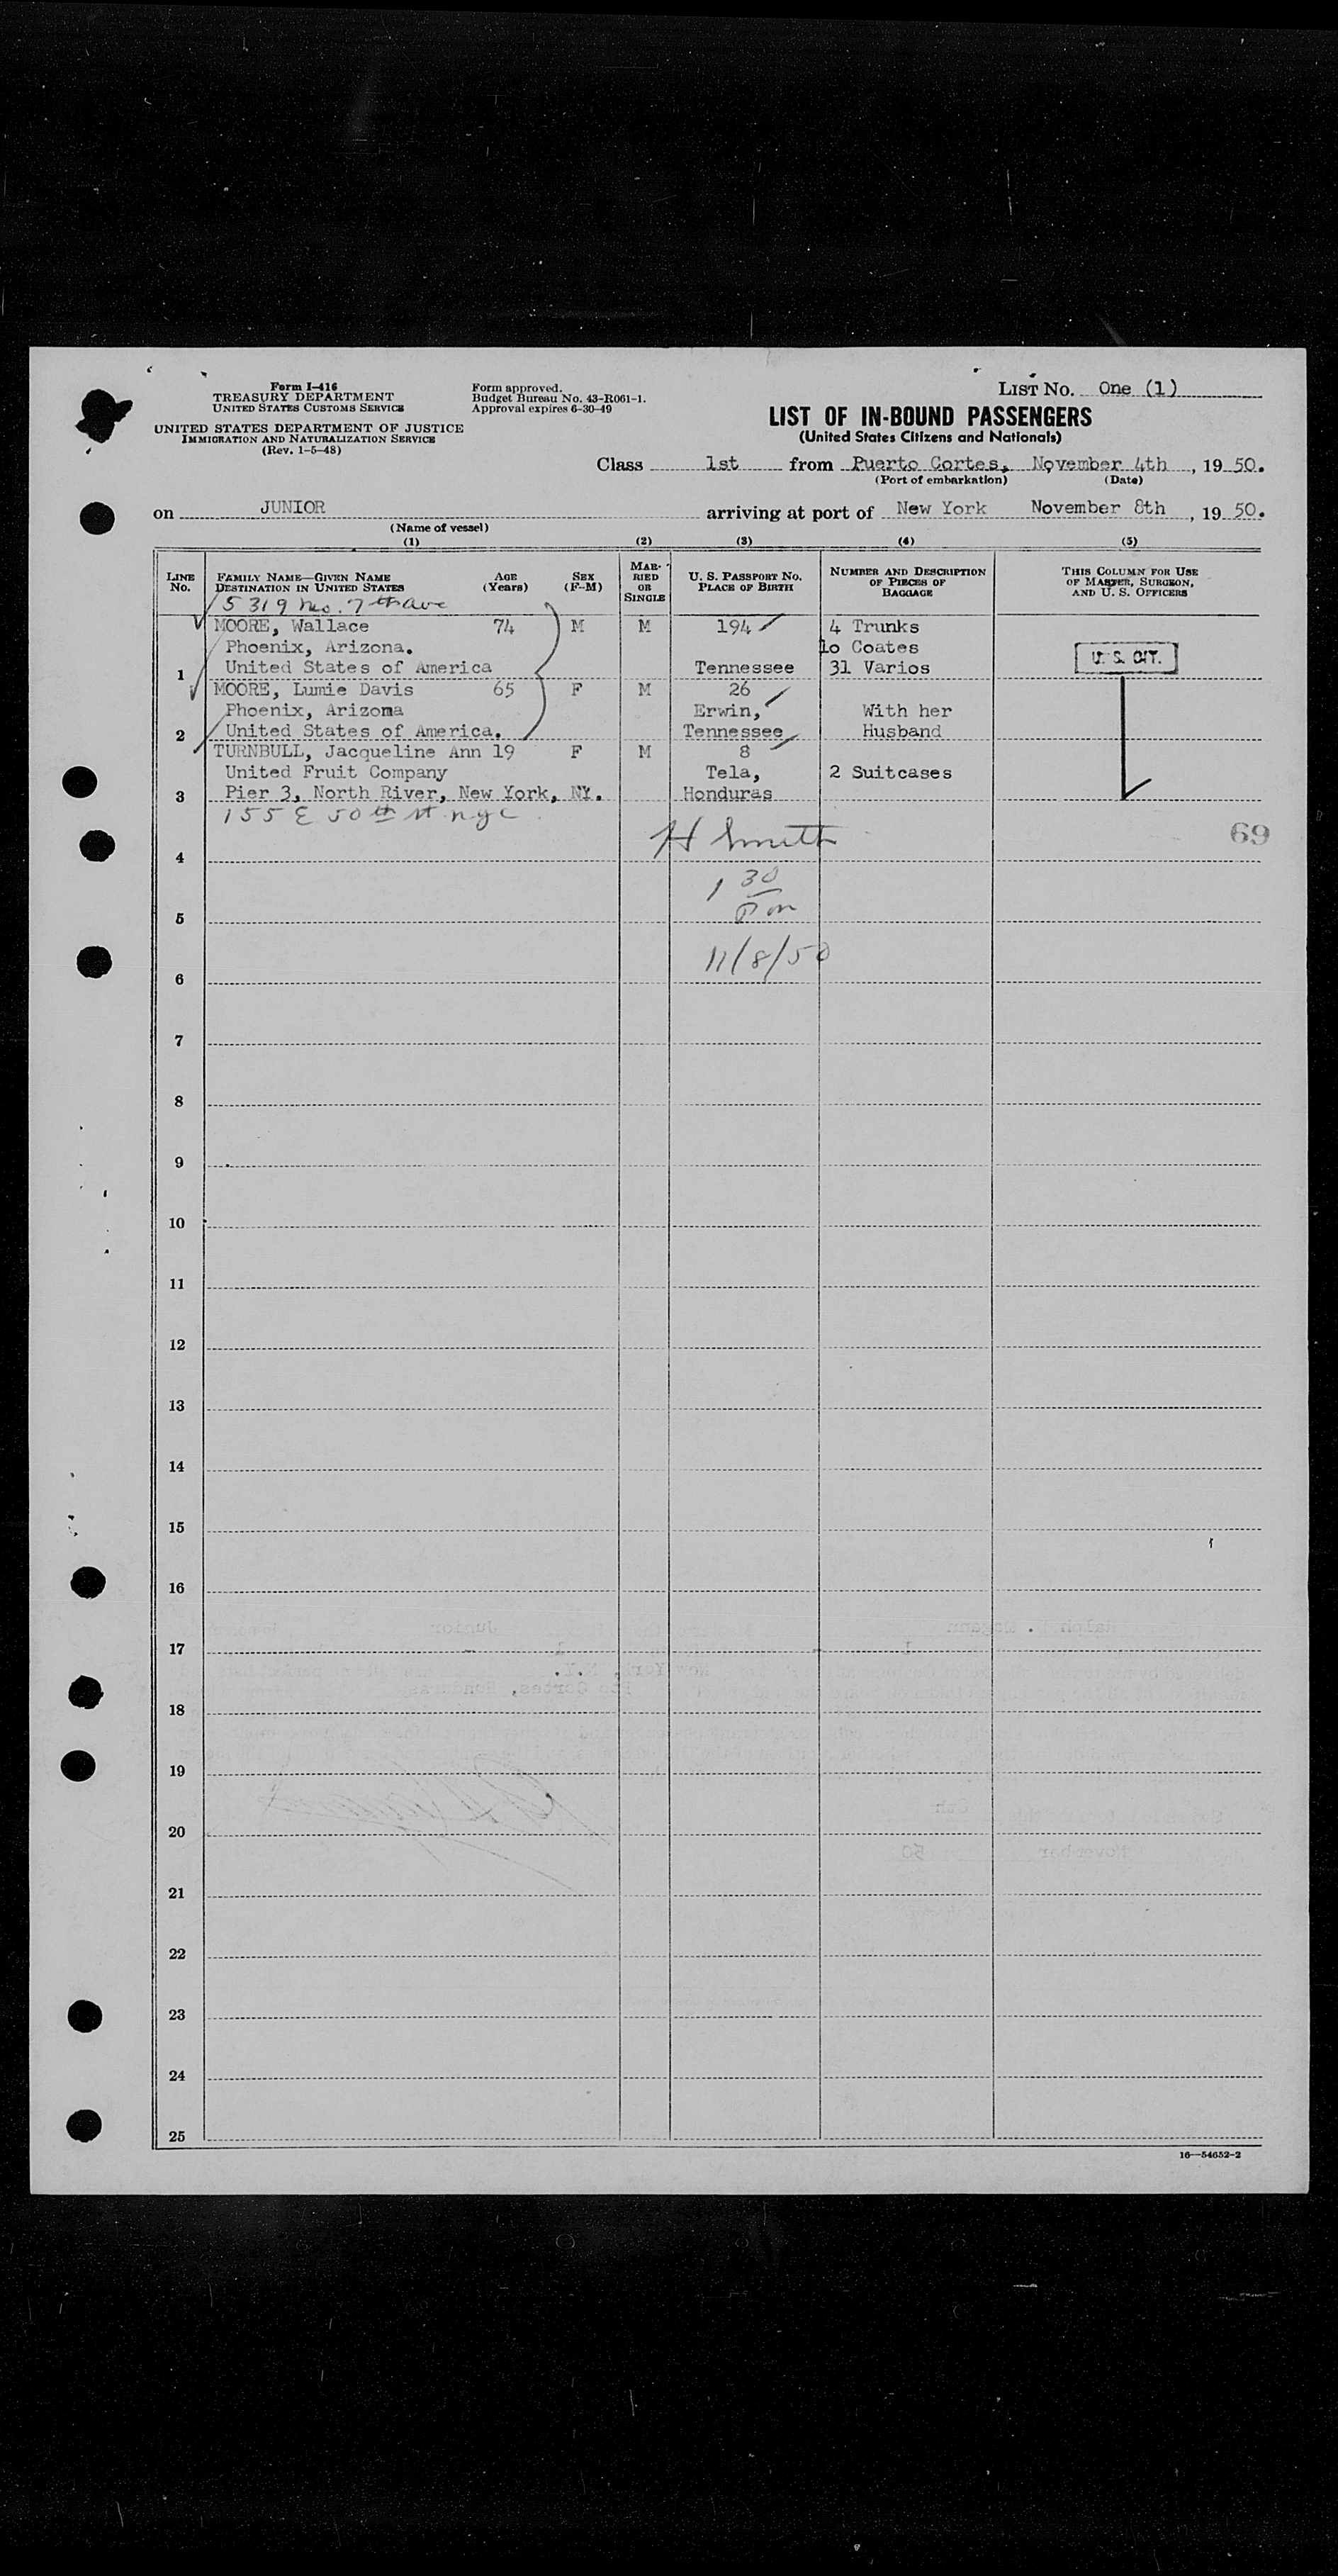 Form I-416
TREASURY DEPARTMENT
UNITED STATES CUSTOMS SERVICE
UNITED STATES DEPARTMENT OF JUSTICE
IMMIGRATION AND NATURALIZATION SERVICE
(Rev. 1-5-48)
Form approved.
Budget Bureau No. 43-R061-1.
Approval expires 6-30-49
LIST NO. One (1)
LIST OF IN-BOUND PASSENGERS
(United States Citizens and Nationals)
Class 1st from Puerto Cortes, November 4th, 19 50.
(Port of embarkation) (Date)
on JUNIOR arriving at port of New York November 8th, 19 50.
(Name of vessel)
(1) (2) (3) (4) (5)
LINE NO.
FAMILY NAME—GIVEN NAME
DESTINATION IN UNITED STATES
AGE (Years)
SEX (F-M)
MARRIED OR SINGLE
U. S. PASSPORT NO.
PLACE OF BIRTH
NUMBER AND DESCRIPTION OF PIECES OF BAGGAGE
THIS COLUMN FOR USE OF MASTER, SURGEON, AND U. S. OFFICERS
5319 No. 7th Ave
MOORE, Wallace 74 M M 194 4 Trunks
Phoenix, Arizona. 10 Coates
1 United States of America Tennessee 31 Varios
U. S. CIT.
MOORE, Lumie Davis 65 F M 26
Phoenix, Arizoma Erwin, With her
2 United States of America. Tennessee Husband
TURNBULL, Jacqueline Ann 19 F M 8
United Fruit Company Tela, 2 Suitcases
3 Pier 3, North River, New York, NY. Honduras
155 E 50th st nyc
H Smith
69
4
1 30
pm
5
11/8/50
6
7
8
9
10
11
12
13
14
15
16
17
18
19
20
21
22
23
24
25
16—54652-2